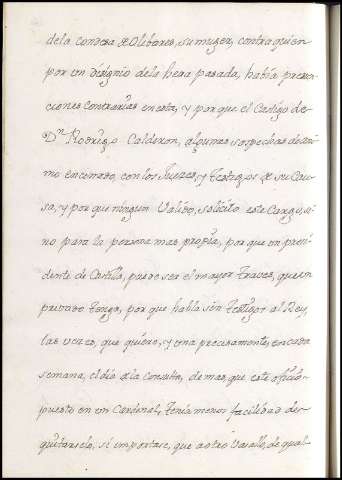 dela Condesa de Olibares, su muger, contra quien
por un designio dela hera pasada, había preven-
ciones contrarias en esta, y por que el Castigo de
Dn. Rodrigo Calderon, algunas sospechas de ani-
mo enconado, con los Jueces, y testigos de su Cau-
sa, y por que ningun Valido, solicito este Cargo, si
no para la persona mas propia, por que un presi-
dente de Castilla, puede ser el mayor traves, que un
privado tenga, por que habla sin testigos al Rey,
las veces, que quiere, y una precisamente, en cada
semana, el dia dela Consulta, de mas, que este oficio
puesto en un Cardenal, tenia menos facilidad de
quitarsele, si importase, que a otro Vasallo, de qual